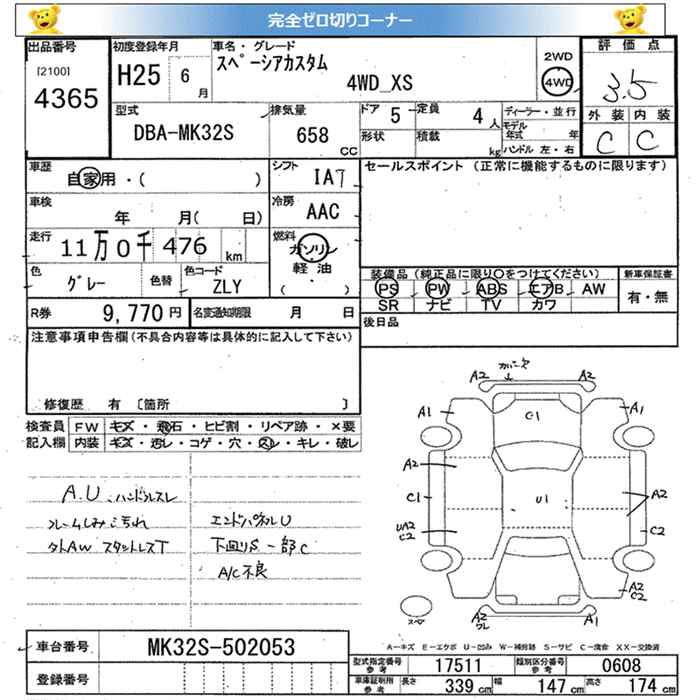 完全ゼロ切りコーナー
出品番号 [2100] 4365
初度登録年月 H25 6月
車名・グレード スペーシアカスタム 4WD_XS
2WD 4WD
評価点 3.5
外装 内装
C C
型式 DBA-MK32S
排気量 658 CC
ドア 5 定員 4人
形状 積載 kg
ディーラー・並行
モデル年式 年
ハンドル 左・右
車歴 自家用・( )
シフト IAT
セールスポイント (正常に機能するものに限ります)
車検 年 月( 日)
冷房 AAC
走行 11万0千476km
燃料 ガソリン 軽油 ( ・ )
色 グレー 色替 色コード ZLY
装備品(純正品に限り○をつけてください) 新車保証書
PS PW ABS エアB AW 有・無
SR ナビ TV カワ
R券 9,770円 名変通知期限 月 日
後日品
注意事項申告欄(不具合内容等は具体的に記入して下さい)
修復歴 有 〔箇所 〕
検査員 FW キズ・飛石・ヒビ割・リペア跡・×要
記入欄 内装 キズ・汚レ・コゲ・穴・スレ・キレ・破レ
A.U. ハンドルスレ
フレームしみ汚れ エンドパネルU
タトAW スタットレスT 下廻りS 一部C
A/C不良
A2 A2
A1 C1 A1
A2
C1 U1 A2
UA2 C2 C2
A2 C2
スペア A2 ワレ A1
A-キズ E-エクボ U-凹み W-補修跡 S-サビ C-腐食 XX-交換済
車台番号 MK32S-502053
登録番号
型式指定番号参考 17511 類別区分番号参考 0608
車庫証明用参考 長さ 339cm 幅 147cm 高さ 174cm